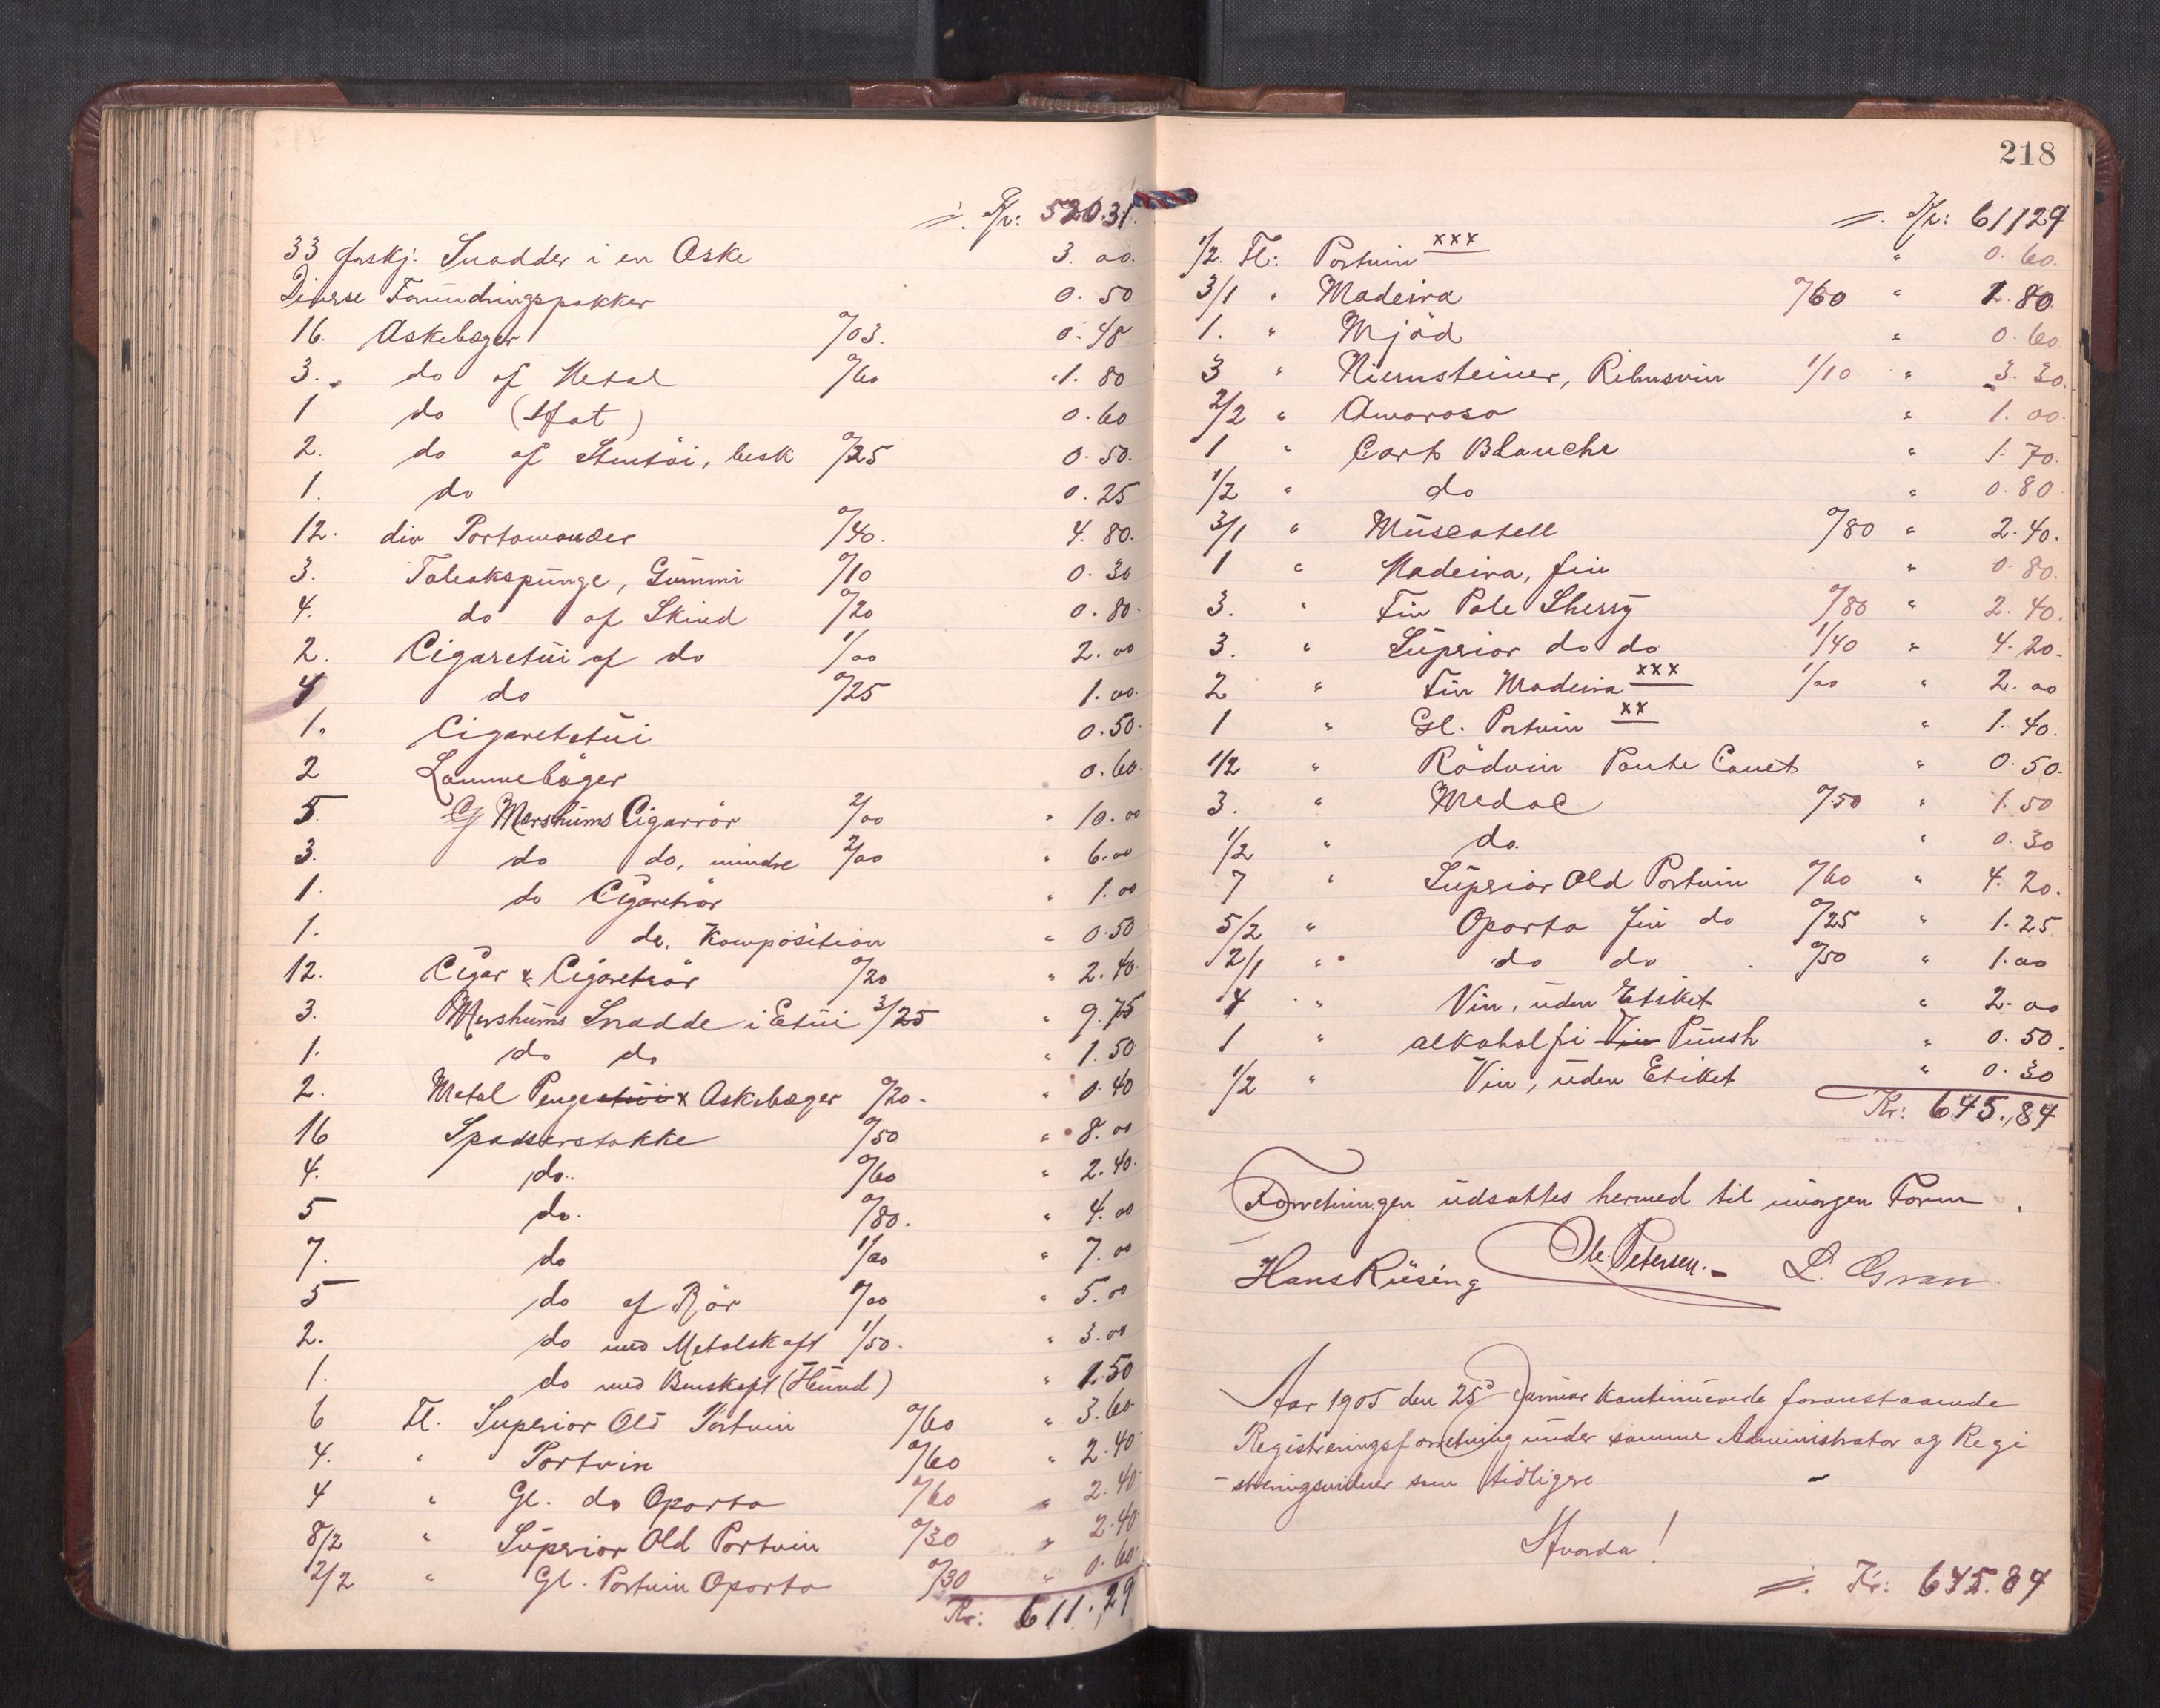 ÷. Kr: 520.31.
33 forskj: Snadder i en Æske 3.00.
Diverse Forundringspakker 0.50
16. Askebæger 0/03. 0.48
3. do af Metal 0/60 1.80
1 do (Fat) 0.60
2. do af Stentöi, besk 0/25 0.50.
1. do 0.25
12. div Portomonæer 0/40. 4.80.
3. Tobakspünge, Gümmi 0/10 0.30
4. do af Skind 0/20 0.80.
2. Cigaretüi af do 1/00 2.00
4 do 0/25 1.00.
1. Cigaretetüi 0.50.
2 Lommebäger 0.60.
5 Mershüms Cigarrör 2/00 " 10.00
3. do do, mindre 2/00 " 6.00
1. do Cigaretrör " 1.00
1. do. Komposition " 0.50
12. Cigar & Cigaretrör 0/20 " 2.40.
3. Mershüms Snadde i Etüi 3/25 " 9.75
1. do do " 1.50
2. Metal Pengeetüi x Askebæger 0/20. " 0.40
16 Spadserstokke 0/50 " 8.00
4. do. 0/60 " 2.40.
5 do. 0/80. " 4.00
7. do 1/00 " 7.00
5 do af Rör 1/00 " 5.00
2. do med Metalskaft 1/50. " 3.00
1. do med Benskaft (Hünd) " 1.50
6 Fl. Superior Old Portvin 0/60 " 3.60
4. " Portvin 0/60 " 2.40
4 " Gl. do Oporto 0/60 " 2.40
8/2 " Süperior Old Portvin 0/30 " 2.40
2/2 " Gl. Portvin Oporto 0/30 " 0.60
Kr: 611.29
218
÷. Kr: 61129
1/2. Fl: Portvin xxx " 0.60.
3/1 " Madeira 0/60 " 1.80
1. " Mjöd " 0.60
3 " Niernsteiner, Rihnsvin 1/10 " 3.30.
2/2 " Amoroso " 1.00.
1 " Cart Blanche " 1.70.
1/2 " do " 0.80
3/1 " Müscatell 0/80 " 2.40.
1 " Madeira, fin " 0.80.
3. " Fin Pale Sherry 0/80 " 2.40.
3. " Süperior do do 1/40 " 4.20.
2 " Fin Madeira xxx 1/00 " 2.00
1 " Gl. Portvin xx " 1.40.
1/2 " Rödvin Ponte Canet " 0.50.
3. " Medoc 0/50 " 1.50
1/2 " do. " 0.30
7 " Süperior Old Portvin 0/60 " 4.20.
5/2 " Oporto fin do 0/25 " 1.25
2/1 " do do 0/50 " 1.00
4 " Vin, üden Etiket " 2.00
1 " alkoholfri Vin Pünsh " 0.50.
1/2 " Vin, üden Etiket " 0.30
Kr: 645.84
Forretningen üdsattes hermed til imorgen Form.
Hans Rüsing Ole Petersen. L. Gran
Aar 1905 den 25d Januar kontinüerede foranstaaende
Registreringsforretning ünder samme Administrator og Regi
-streringsvidner som tidligere –
Hvorda!
÷. Kr: 645.84